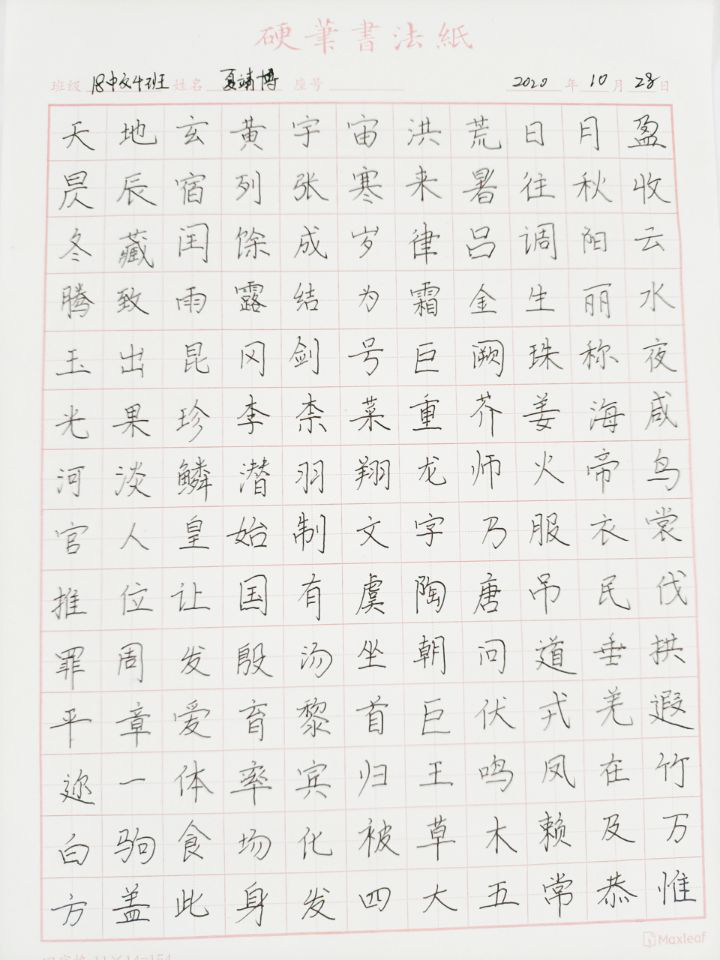 硬筆書法紙
班级 18中文4班 姓名 夏靖博 座号 2020 年 10 月 28 日
天地玄黄宇宙洪荒日月盈
昃辰宿列张寒来暑往秋收
冬藏闰馀成岁律吕调阳云
腾致雨露结为霜金生丽水
玉出昆冈剑号巨阙珠称夜
光果珍李柰菜重芥姜海咸
河淡鳞潜羽翔龙师火帝鸟
官人皇始制文字乃服衣裳
推位让国有虞陶唐吊民伐
罪周发殷汤坐朝问道垂拱
平章爱育黎首巨伏戎羌遐
迩一体率宾归王鸣凤在竹
白驹食场化被草木赖及万
方盖此身发四大五常恭惟
11×14=154
Maxleaf